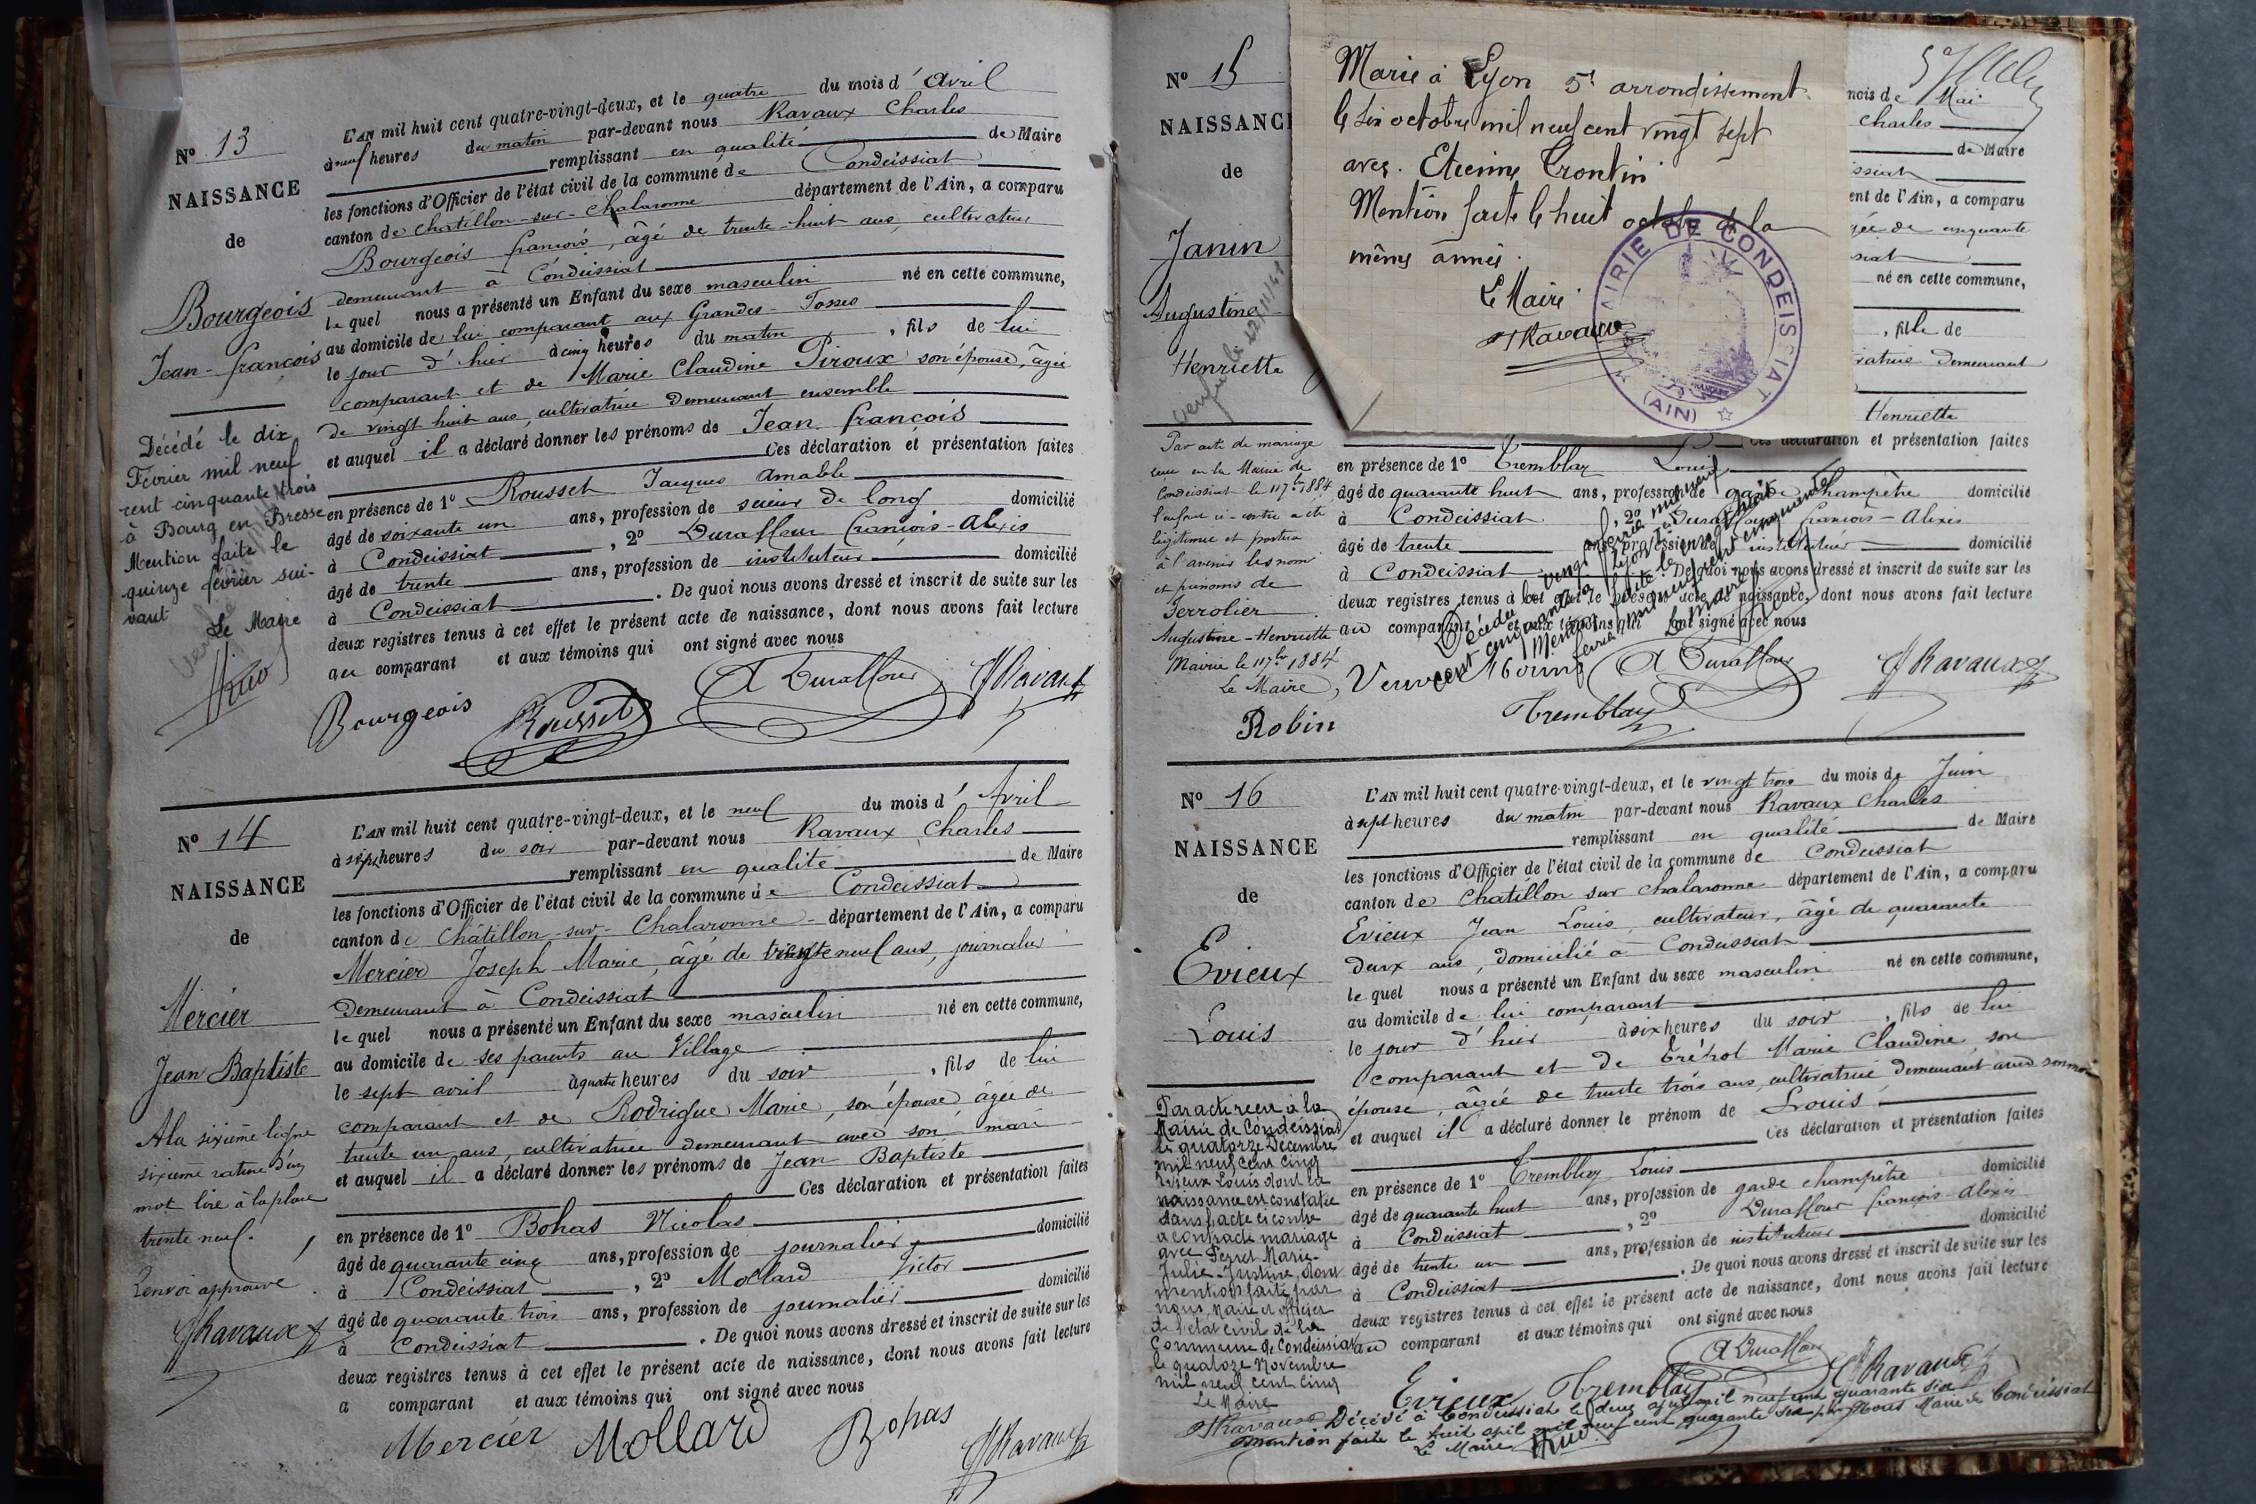 N° 13
NAISSANCE
de
Bourgeois
Jean-françois
Décédé le dix
Février mil neuf
cent cinquante trois
à Bourg en Bresse
Mention faite le
quinze février sui-
vant
Le Maire
L'AN mil huit cent quatre-vingt-deux, et le quatre du mois d'avril
à neuf heures du matin par-devant nous Ravaux Charles
remplissant en qualité de Maire
les fonctions d'Officier de l'état civil de la commune de Condeissiat
canton de Chatillon-sur-Chalaronne département de l'Ain, a comparu
Bourgeois françois, âgé de trente-huit ans, cultivateur
demeurant à Condeissiat
lequel nous a présenté un Enfant du sexe masculin né en cette commune,
au domicile de lui comparant aux Grandes-Fosses
le jour d'hier à cinq heures du matin, fils de lui
comparant et de Marie Claudine Piroux son épouse, âgée
de vingt huit ans, cultivatrice demeurant ensemble
et auquel il a déclaré donner les prénoms de Jean françois
Ces déclaration et présentation faites
en présence de 1° Rousset Jacques Amable
âgé de soixante un ans, profession de scieur de long domicilié
à Condeissiat, 2° Duraffour François-Alexis
âgé de trente ans, profession de instituteur domicilié
à Condeissiat. De quoi nous avons dressé et inscrit de suite sur les
deux registres tenus à cet effet le présent acte de naissance, dont nous avons fait lecture
au comparant et aux témoins qui ont signé avec nous
Bourgeois Rousset A Duraffour Ravaux
N° 14
NAISSANCE
de
Mercier
Jean Baptiste
A la sixième ligne
sixième rature d'un
mot lire à la place
trente neuf.
Renvoi approuvé
Ravaux
L'AN mil huit cent quatre-vingt-deux, et le neuf du mois d'Avril
à sept heures du soir par-devant nous Ravaux Charles
remplissant en qualité de Maire
les fonctions d'Officier de l'état civil de la commune de Condeissiat
canton de Châtillon-sur-Chalaronne département de l'Ain, a comparu
Mercier Joseph Marie, âgé de trente neuf ans, journalier
demeurant à Condeissiat
lequel nous a présenté un Enfant du sexe masculin né en cette commune,
au domicile de ses parents au Village
le sept avril à quatre heures du soir, fils de lui
comparant et de Rodrigue Marie, son épouse âgée de
trente un ans, cultivatrice demeurant avec son mari
et auquel il a déclaré donner les prénoms de Jean Baptiste
Ces déclaration et présentation faites
en présence de 1° Bohas Nicolas domicilié
âgé de quarante cinq ans, profession de journalier
à Condeissiat, 2° Mollard Victor
âgé de quarante trois ans, profession de journalier domicilié
à Condeissiat. De quoi nous avons dressé et inscrit de suite sur les
deux registres tenus à cet effet le présent acte de naissance, dont nous avons fait lecture
a comparant et aux témoins qui ont signé avec nous
Mercier Mollard Bohas Ravaux
N° 15
NAISSANCE
de
Janin
Augustine
Henriette
Par acte de mariage
reçu en la Mairie de
Condeissiat le 11 7bre 1884
l'enfant ci-contre a été
légitimée et portera
à l'avenir les nom
et prénoms de
Ferrolier
Augustine-Henriette
Mairie le 11 7bre 1884
Le Maire,
Robin
Marié à Lyon 5e arrondissement
le six octobre mil neuf cent vingt sept
avec Etienne Trontin
Mention faite le huit octobre de la
même année.
Le Maire
Ravaux
MAIRIE DE CONDEISSIAT
(AIN)
mois de Mai
Charles
de Maire
ssiat
ent de l'Ain, a comparu
gée de cinquante
ssiat
né en cette commune,
, fille de
vatrice demeurant
Henriette
Ces déclaration et présentation faites
en présence de 1° Tremblay Louis
âgé de quarante huit ans, profession de garde champêtre domicilié
à Condeissiat, 2° Duraffour François-Alexis
âgé de trente ans, profession de instituteur domicilié
à Condeissiat. De quoi nous avons dressé et inscrit de suite sur les
deux registres tenus à cet effet le présent acte de naissance, dont nous avons fait lecture
au comparant et aux témoins qui ont signé avec nous
A Duraffour Ravaux
Tremblay
N° 16
NAISSANCE
de
Evieux
Louis
Par acte reçu à la
Mairie de Condeissiat
le quatorze Décembre
mil neuf cent cinq
Evieux Louis dont la
naissance est constatée
dans l'acte ci contre
a contracté mariage
avec Perret Marie-
Julie-Justine, dont
mention faite par
nous, Maire et officier
de l'état civil de la
Commune de Condeissiat
le quatoze Novembre
mil neuf cent cinq
Le Maire
Ravaux
L'AN mil huit cent quatre-vingt-deux, et le vingt trois du mois de Juin
à sept heures du matin par-devant nous Ravaux Charles
remplissant en qualité de Maire
les fonctions d'Officier de l'état civil de la commune de Condeissiat
canton de Chatillon sur Chalaronne département de l'Ain, a comparu
Evieux Jean Louis, cultivateur, âgé de quarante
deux ans, domicilié à Condeissiat
lequel nous a présenté un Enfant du sexe masculin né en cette commune,
au domicile de lui comparant
le jour d'hier à six heures du soir, fils de lui
comparant et de Tréhot Marie Claudine, son
épouse, âgée de trente trois ans, cultivatrice demeurant avec son mari
et auquel il a déclaré donner le prénom de Louis
Ces déclaration et présentation faites
en présence de 1° Tremblay Louis
âgé de quarante huit ans, profession de garde champêtre domicilié
à Condeissiat, 2° Duraffour françois-Alexis
âgé de trente un ans, profession de instituteur domicilié
à Condeissiat. De quoi nous avons dressé et inscrit de suite sur les
deux registres tenus à cet effet le présent acte de naissance, dont nous avons fait lecture
au comparant et aux témoins qui ont signé avec nous
A Duraffour
Evieux Tremblay Ravaux
Décédé à Condeissiat le deux avril mil neuf cent quarante six
mention faite le huit avril mil neuf cent quarante six par Nous Maire de Condeissiat
Le Maire